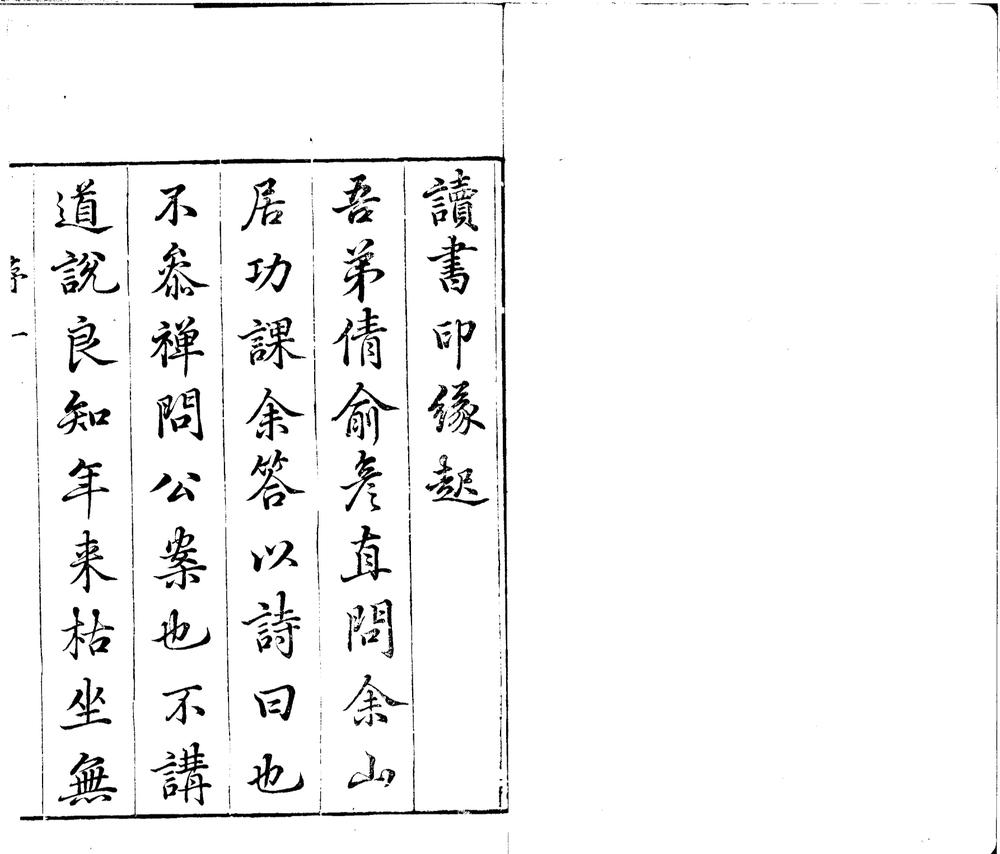 讀書印緣起
吾弟倩俞彥直問余山
居功課余答以詩曰也
不叅禅問公案也不講
道說良知年来枯坐無
序 一